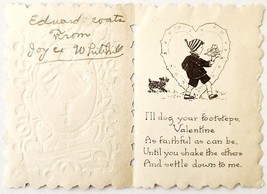 Eduard coats
From
Joyce W
I'll dog your footsteps,
Valentine
As faithful as can be,
Until you shake the others
And settle down to me.